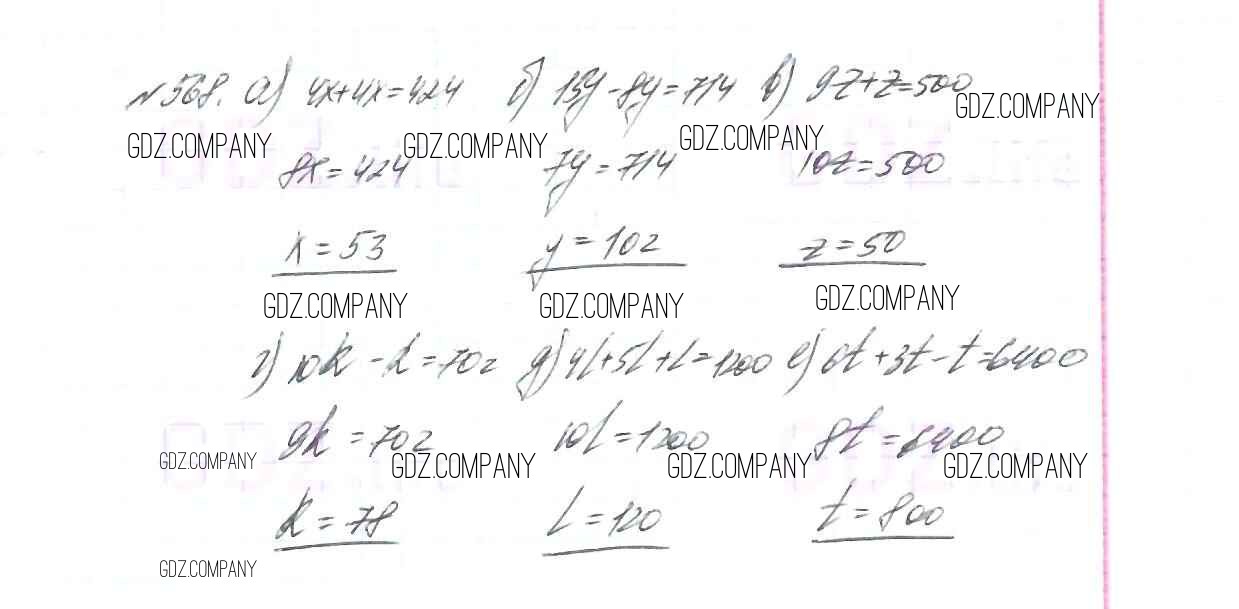 №568. а) 4x+4x=424 б) 15y-8y=714 в) 9z+z=500
GDZ.COMPANY GDZ.COMPANY GDZ.COMPANY GDZ.COMPANY
8x=424 7y=714 10z=500
x=53 y=102 z=50
GDZ.COMPANY GDZ.COMPANY GDZ.COMPANY
г) 10k-k=702 д) 4l+5l+l=1200 е) 6t+3t-t=6400
9k=702 10l=1200 8t=6400
GDZ.COMPANY GDZ.COMPANY GDZ.COMPANY GDZ.COMPANY
k=78 l=120 t=800
GDZ.COMPANY